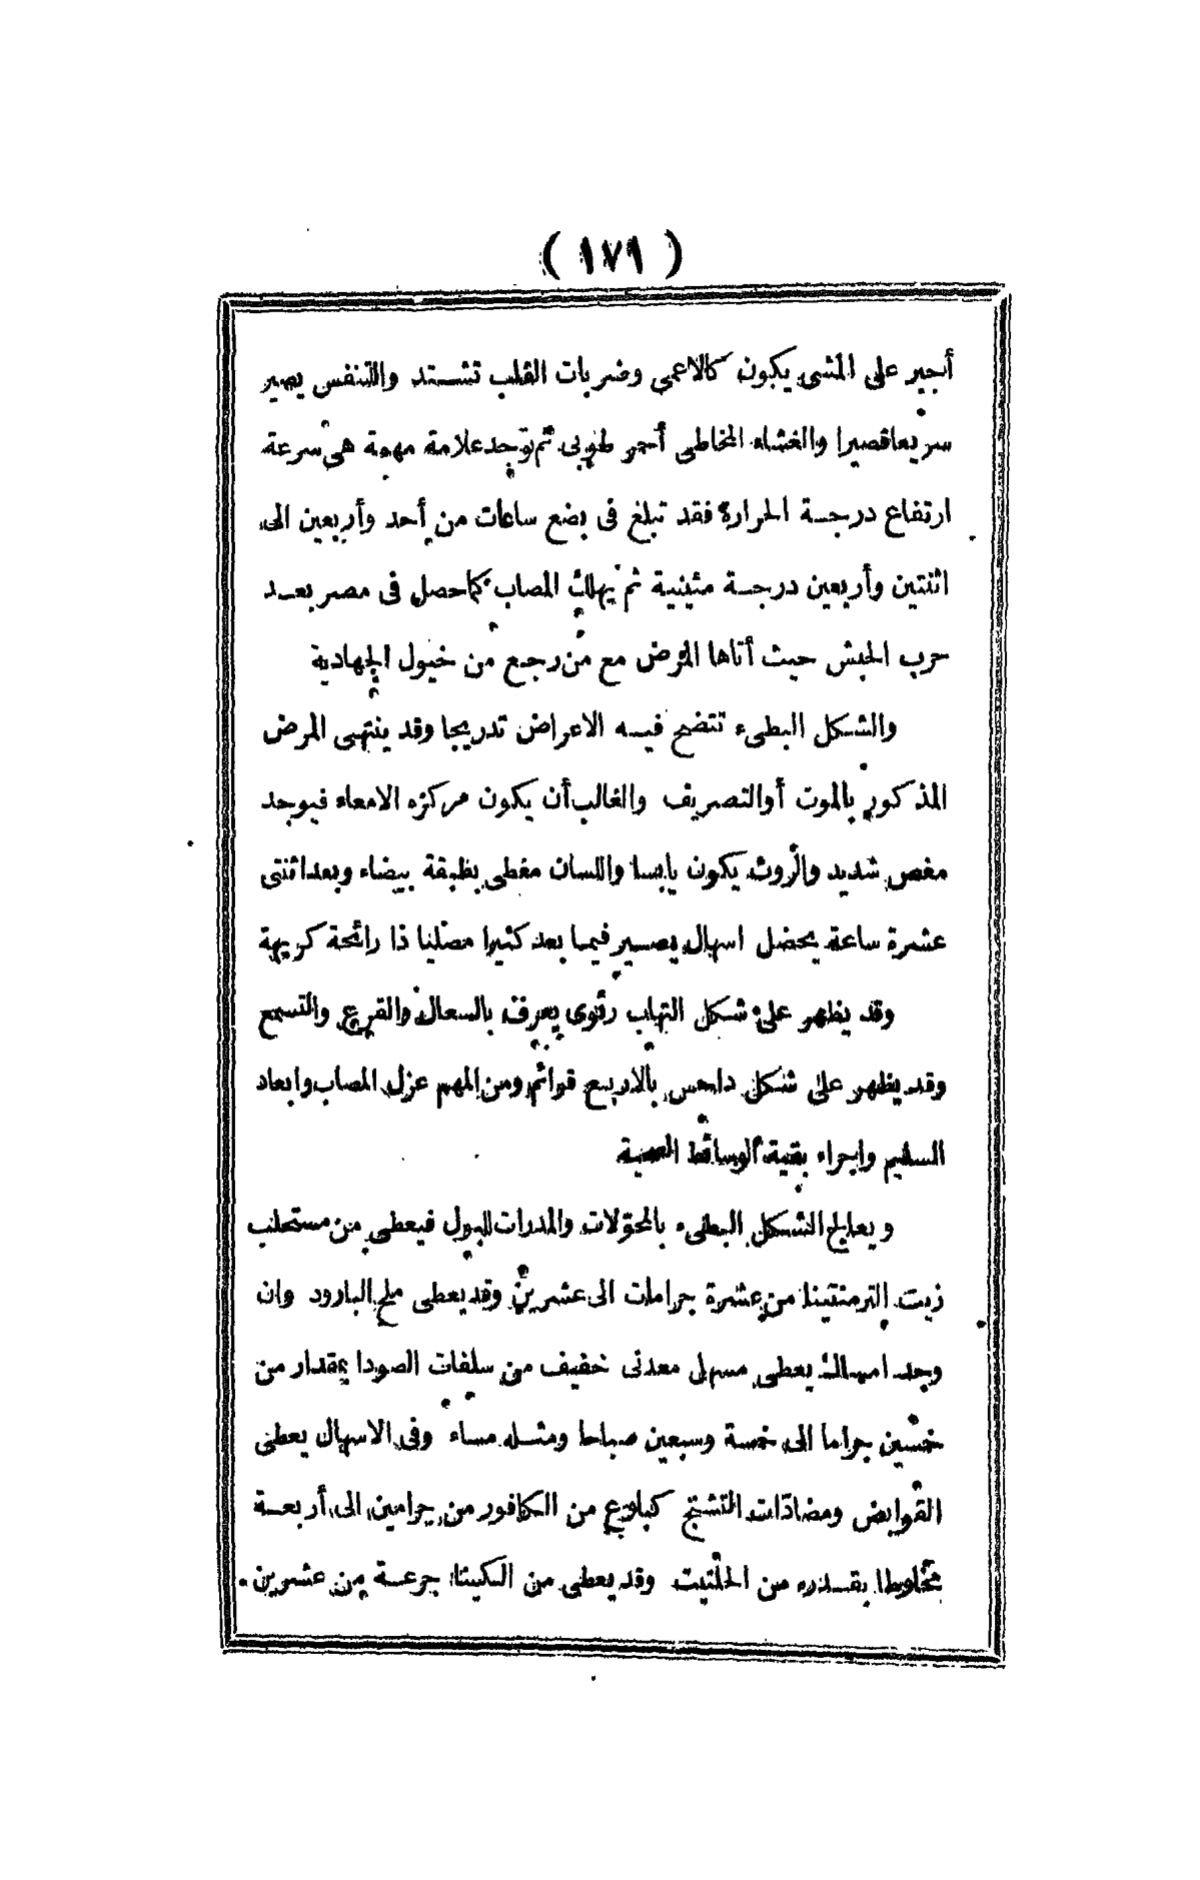 ( ١٧١ )
أجبر على المشى يكون كالاعمى وضربات القلب تشتد والتنفس يصير
سريعا قصيرا والغشاء المخاطى أحمر طوبى ثم توجد علامة مهمة هى سرعة
ارتفاع درجة الحرارة فقد تبلغ فى بضع ساعات من أحد وأربعين الى
اثنتين وأربعين درجة مئينية ثم يهلك المصاب كما حصل فى مصر بعد
حرب الحبش حيث أتاها المرض مع من رجع من خيول الجهادية
والشكل البطىء تتضح فيه الاعراض تدريجا وقد ينتهى المرض
المذكور بالموت أوالتصريف والغالب أن يكون مركزه الامعاء فيوجد
مغص شديد والروث يكون يابسا واللسان مغطى بطبقة بيضاء وبعد اثنتى
عشرة ساعة يحصل اسهال يصير فيما بعد كثيرا مصليا ذا رائحة كريهة
وقد يظهر على شكل التهاب رئوى يعرف بالسعال والقرع والتسمع
وقد يظهر على شكل داحس بالاربع قوائم ومن المهم عزل المصاب وابعاد
السليم واجراء بقية الوسائط الصحية
ويعالج الشكل البطىء بالمحوّلات والمدرات للبول فيعطى من مستحلب
زيت الترمنتينا من عشرة جرامات الى عشرين وقد يعطى ملح البارود وان
وجد امساك يعطى مسهل معدنى خفيف من سلفات الصودا بمقدار من
خمسين جراما الى خمسة وسبعين صباحا ومثله مساء وفى الاسهال يعطى
القوابض ومضادّات التشنج كبلوع من الكافور من جرامين الى أربعة
مخلوطا بقدره من الحلتيت وقد يعطى من الكينا جرعة من عشرين